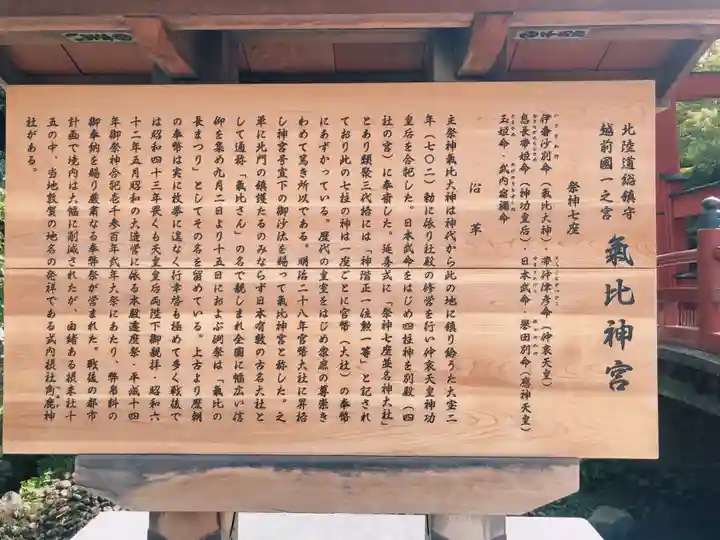 北陸道総鎮守
越前國一之宮
氣比神宮
祭神七座
伊奢沙別命(氣比大神)・帶沖津彦命(仲哀天皇)
息長帶姫命(神功皇后)・日本武命・誉田別命(應神天皇)
玉姫命・武内宿禰命
沿革
主祭神氣比大神は神代から此の地に鎮り給うた大宝二
年(七〇二)勅に依り社殿の修営を行い仲哀天皇神功
皇后を合祀した。日本武命をはじめ四柱神を別殿(四
社の宮)に奉斎した。延喜式に「祭神七座並名神大社」
とあり類聚三代格には「神階正一位勲一等」と記され
ており此の七柱の神は一座ごとに官幣(大社)の奉幣
にあずかっている。歴代の皇室をはじめ衆庶の尊崇き
わめて篤き所以である。明治二十八年官幣大社に昇格
し神宮号宣下の御沙汰を賜って氣比神宮と称した。之
單に北門の鎮護たるのみならず日本有数の古名大社と
して通称「氣比さん」の名で親しまれ全国に幅広い信
仰を集め九月二日より十五日におよぶ例祭は「氣比の
長まつり」としてその名を留めている。上古より歴朝
の奉幣は実に枚挙に遑なく行幸啓も極めて多く戦後で
は昭和四十三年畏くも天皇皇后両陛下御親拝・昭和六
十二年五月昭和の大造営に依る本殿遷座祭・平成十四
年御祭神合祀壱千参百年式年大祭にあたり、幣帛料の
御奉納を賜り厳肅なる奉幣祭が営まれた。戦後の都市
計画で境内は大幅に削減されたが、由緒ある摂末社十
五の中、当地敦賀の地名の発祥である式内摂社角鹿神
社がある。